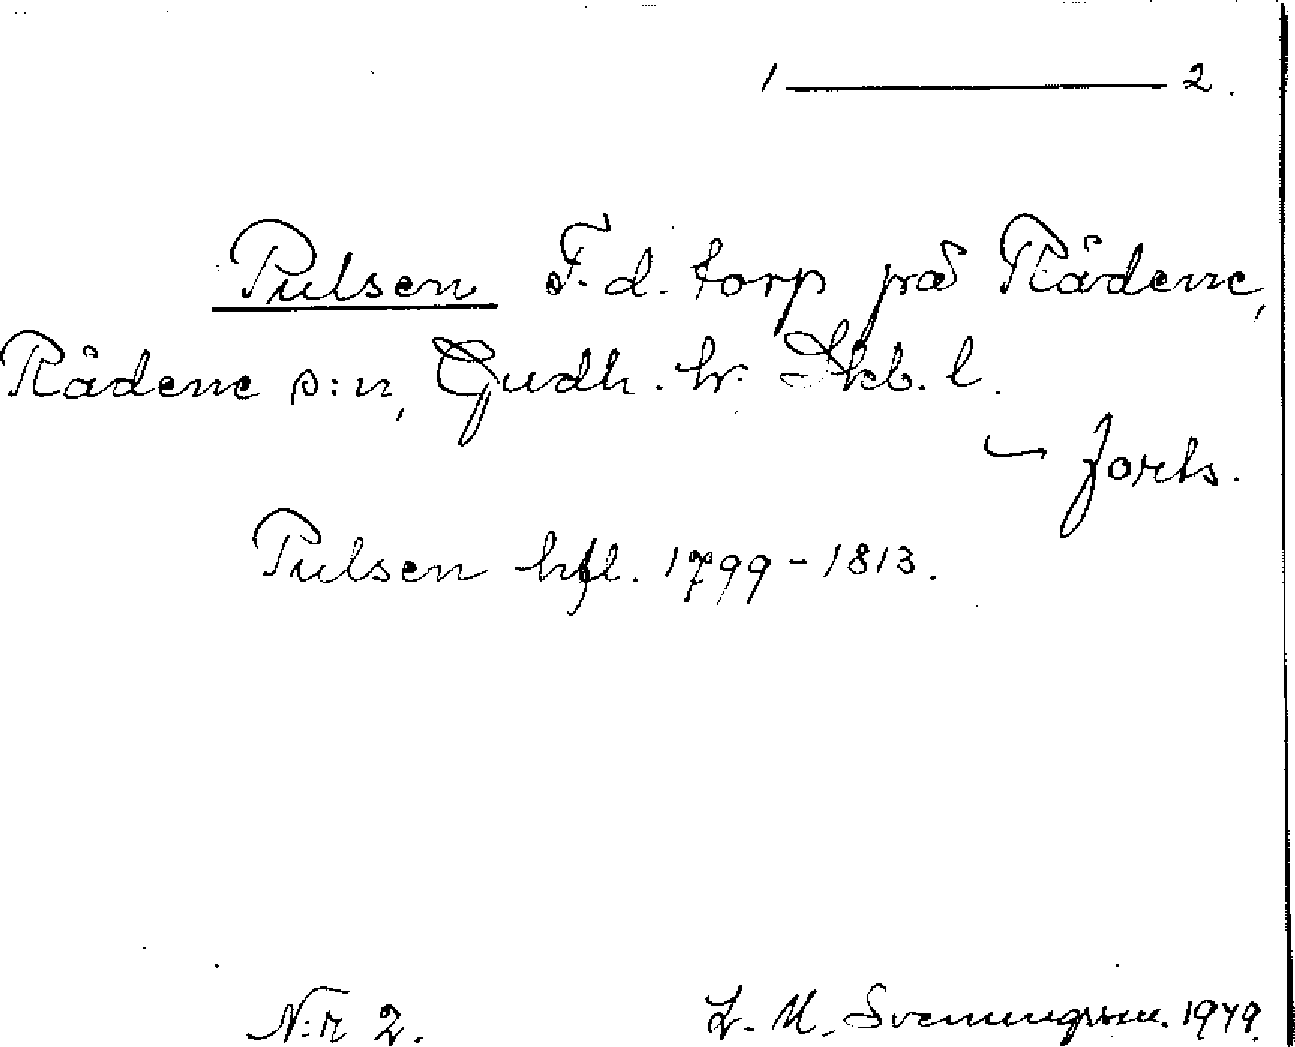 1 ——— 2.
Pulsen F.d. torp på Rådene,
Rådene s:n, Gudh. hr. Skb. l.
— forts.
Pulsen hfl. 1799-1813.
N:r 2. L. M. Svenungsson. 1949.